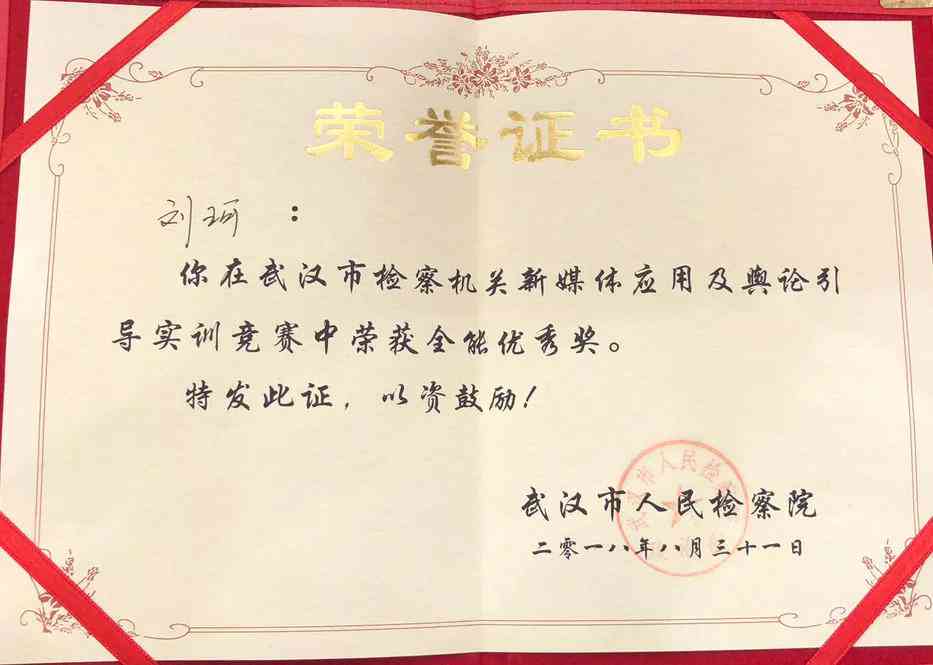 荣誉证书
刘珂：
你在武汉市检察机关新媒体应用及舆论引
导实训竞赛中荣获全能优秀奖。
特发此证，以资鼓励！
武汉市人民检察院
二零一八年八月三十一日
武汉市人民检察